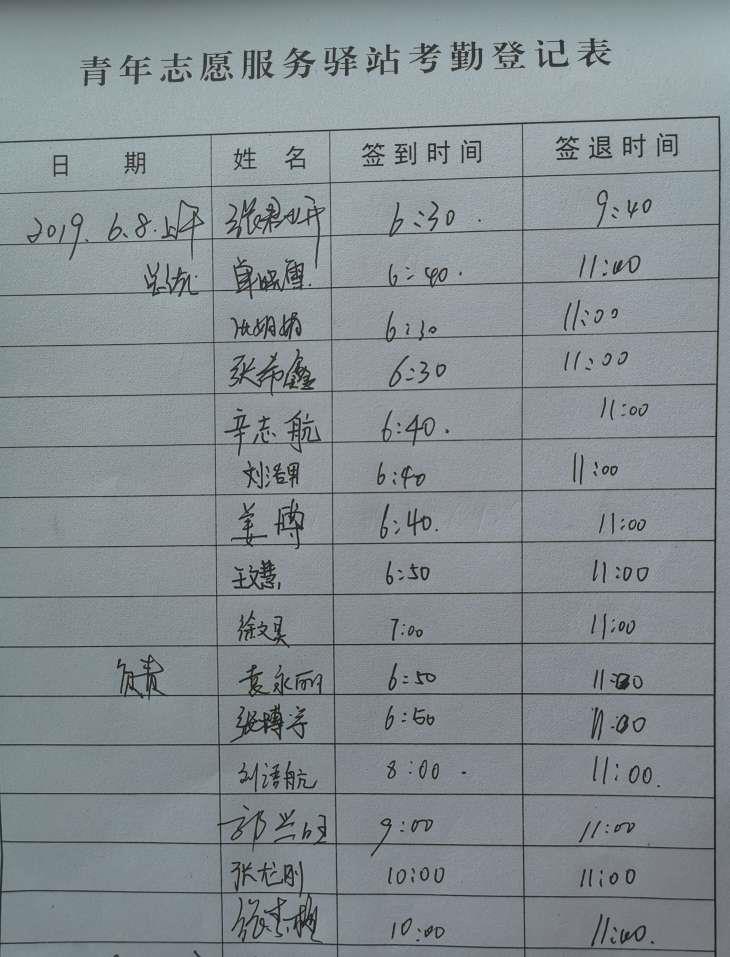 青年志愿服务驿站考勤登记表
日 期 姓 名 签到时间 签退时间
2019.6.8.上午 6:30 9:40
6:40 11:00
6:30 11:00
张希鑫 6:30 11:00
辛志航 6:40 11:00
刘浩男 6:40 11:00
姜博 6:40 11:00
王文慧 6:50 11:00
徐文昊 7:00 11:00
负责 袁永丽 6:50 11:00
张博学 6:50 11:00
刘语航 8:00 11:00
郭兴旺 9:00 11:00
张龙刚 10:00 11:00
10:00 11:00